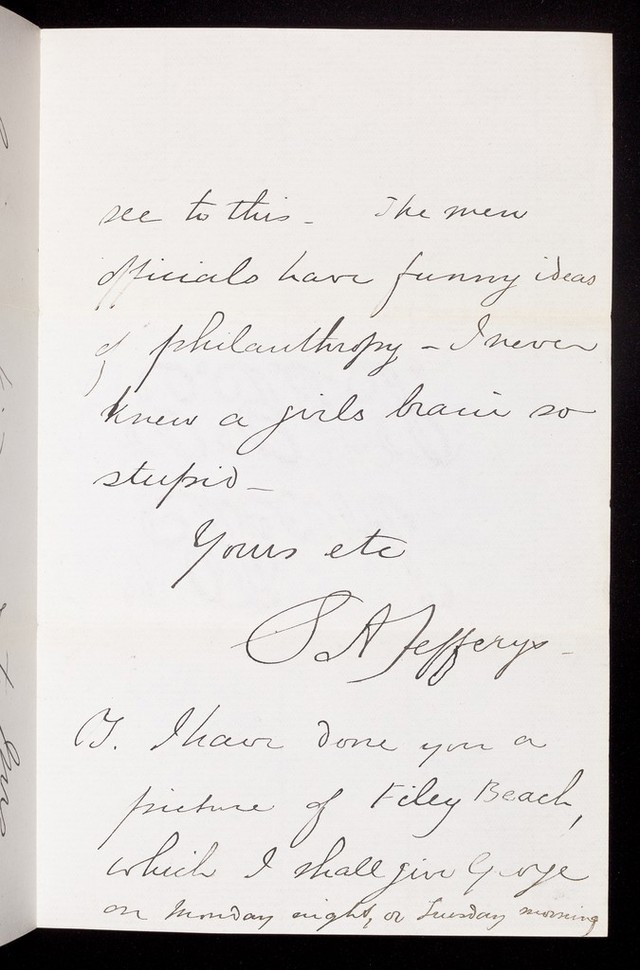 see to this - The men
officials have funny ideas
of philanthropy - I never
knew a girls brain so
stupid -
Yours etc
S A Jefferys -
I have done you a
picture of Filey Beach,
which I shall give George
on Monday night, or Tuesday morning